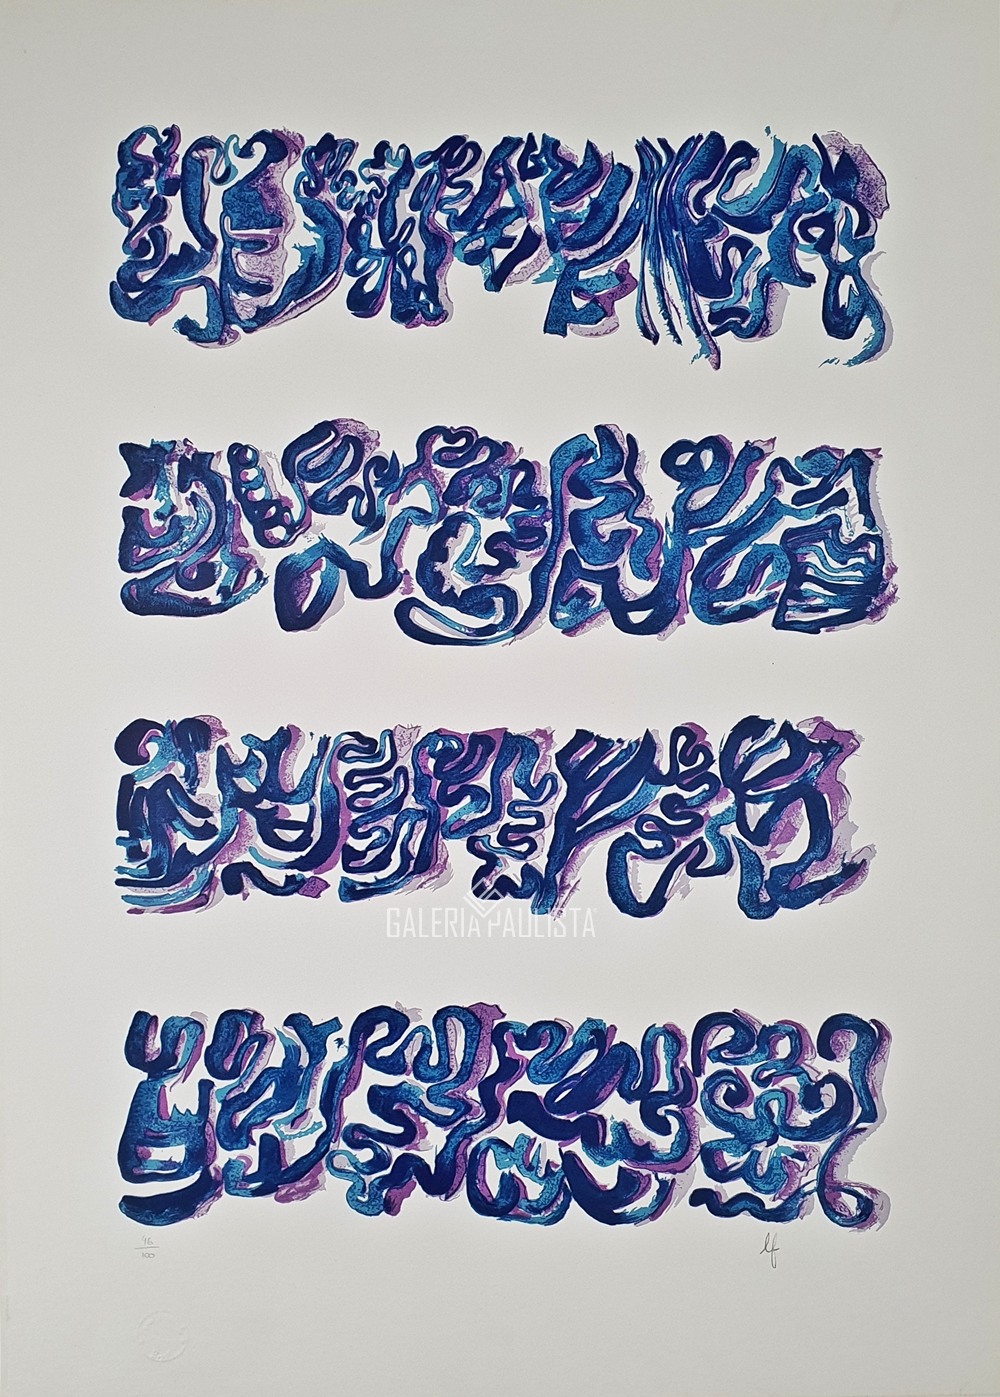 GALERIA PAULISTA
46
100
lf